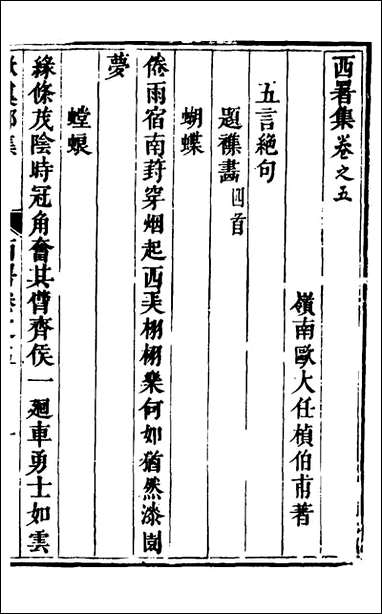 西署集卷之五
嶺南歐大任楨伯甫著
五言絕句
題襍畫四首
蝴蝶
倦雨宿南葑穿烟起西美栩栩樂何如猶然漆園
夢
螳蜋
緑條茂陰時冠角奮其臂齊侯一廻車勇士如雲